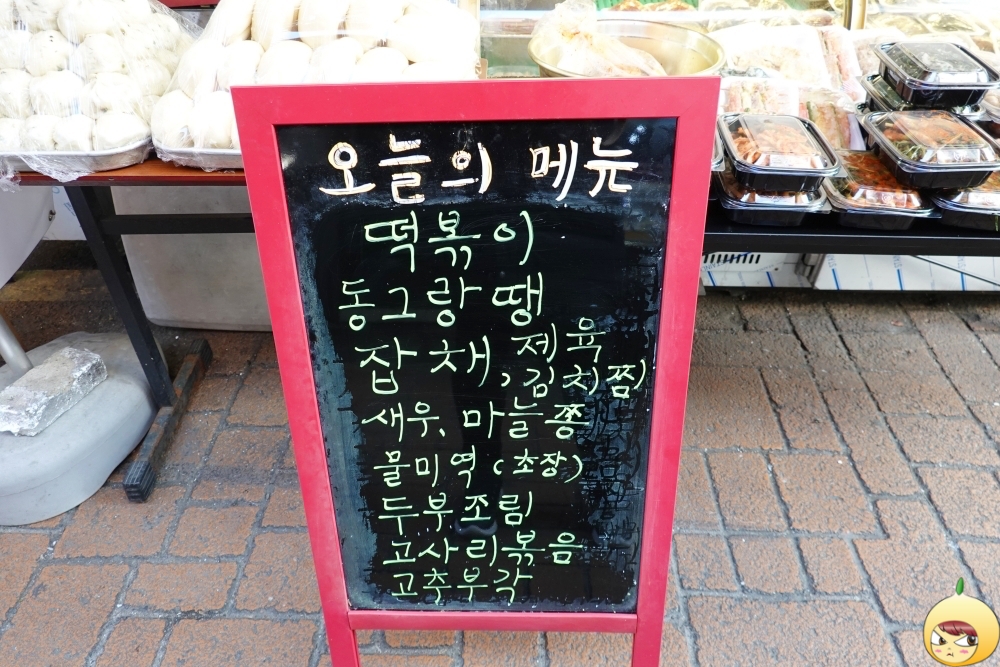 오늘의 메뉴
떡볶이
동그랑땡
잡채, 제육
김치찜)
새우, 마늘쫑
물미역 (초장)
두부조림
고사리볶음
고추부각